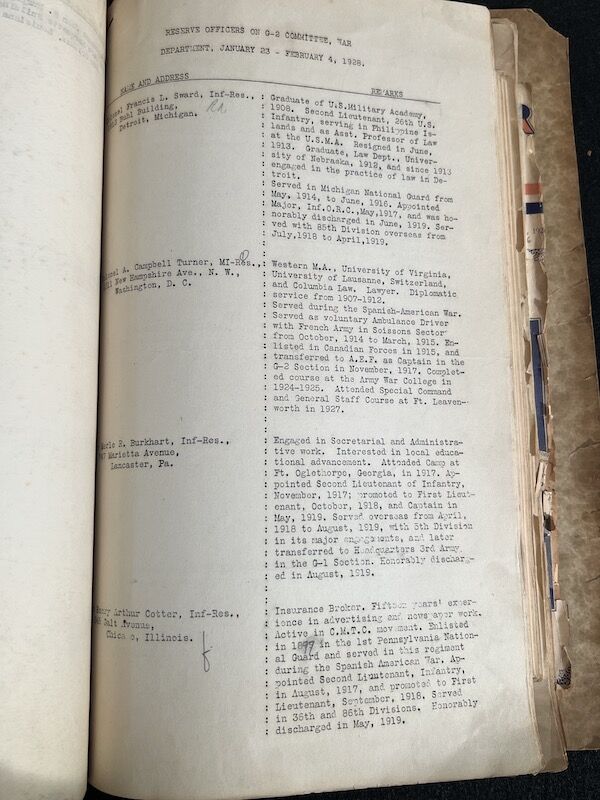 RESERVE OFFICERS ON G-2 COMMITTEE, WAR
DEPARTMENT, JANUARY 23 - FEBRUARY 4, 1928.
NAME AND ADDRESS
REMARKS
Francis L. Sward, Inf-Res.,
Buhl Building,
Detroit, Michigan.
: Graduate of U.S.Military Academy,
: 1908. Second Lieutenant, 26th U.S.
: Infantry, serving in Philippine Is-
: lands and as Asst. Professor of Law
: at the U.S.M.A. Resigned in June,
: 1913. Graduate, Law Dept., Univer-
: sity of Nebraska, 1912, and since 1913
: engaged in the practice of law in De-
: troit.
: Served in Michigan National Guard from
: May, 1914, to June, 1916. Appointed
: Major, Inf.O.R.C.,May,1917, and was ho-
: norably discharged in June, 1919. Ser-
: ved with 85th Division overseas from
: July,1918 to April,1919.
A. Campbell Turner, MI-Res.,
New Hampshire Ave., N. W.,
Washington, D. C.
: Western M.A., University of Virginia,
: University of Lausanne, Switzerland,
: and Columbia Law. Lawyer. Diplomatic
: service from 1907-1912.
: Served during the Spanish-American War.
: Served as voluntary Ambulance Driver
: with French Army in Soissons Sector
: from October, 1914 to March, 1915. En-
: listed in Canadian Forces in 1915, and
: transferred to A.E.F. as Captain in the
: G-2 Section in November, 1917. Complet-
: ed course at the Army War College in
: 1924-1925. Attended Special Command
: and General Staff Course at Ft. Leaven-
: worth in 1927.
R. Burkhart, Inf-Res.,
Marietta Avenue,
Lancaster, Pa.
: Engaged in Secretarial and Administra-
: tive work. Interested in local educa-
: tional advancement. Attended Camp at
: Ft. Oglethorpe, Georgia, in 1917. Ap-
: pointed Second Lieutenant of Infantry,
: November, 1917; promoted to First Lieut-
: enant, October, 1918, and Captain in
: May, 1919. Served overseas from April,
: 1918 to August, 1919, with 5th Division
: in its major engagements, and later
: transferred to Headquarters 3rd Army
: in the G-1 Section. Honorably discharg-
: ed in August, 1919.
Arthur Cotter, Inf-Res.,
Galt Avenue,
Chicago, Illinois.
: Insurance Broker. Fifteen years' exper-
: ience in advertising and newspaper work.
: Active in C.M.T.C. movement. Enlisted
: in 1899 in the 1st Pennsylvania Nation-
: al Guard and served in this regiment
: during the Spanish American War. Ap-
: pointed Second Lieutenant, Infantry,
: in August, 1917, and promoted to First
: Lieutenant, September, 1918. Served
: in 35th and 86th Divisions. Honorably
: discharged in May, 1919.